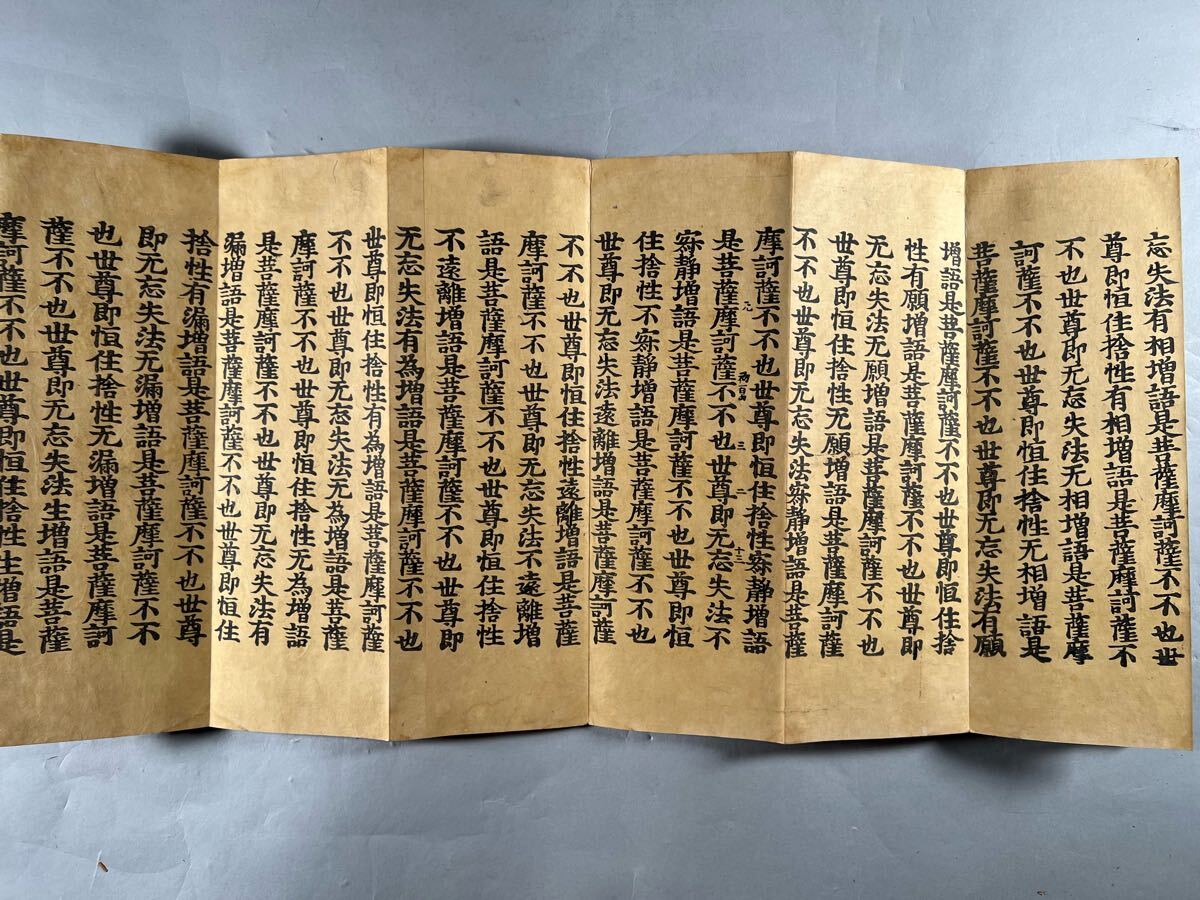 忘失法有相增語是菩薩摩訶薩不不也世
尊即恒住捨性有相增語是菩薩摩訶薩不
不也世尊即无忘失法无相增語是菩薩摩
訶薩不不也世尊即恒住捨性无相增語是
菩薩摩訶薩不不也世尊即无忘失法有願
增語是菩薩摩訶薩不不也世尊即恒住捨
性有願增語是菩薩摩訶薩不不也世尊即
无忘失法无願增語是菩薩摩訶薩不不也
世尊即恒住捨性无願增語是菩薩摩訶薩
不不也世尊即无忘失法寂静增語是菩薩
摩訶薩不不也世尊即恒住捨性寂静增語
三 二 十三
是菩薩摩訶薩不不也世尊即无忘失法不
寂静增語是菩薩摩訶薩不不也世尊即恒
住捨性不寂静增語是菩薩摩訶薩不不也
世尊即无忘失法遠離增語是菩薩摩訶薩
不不也世尊即恒住捨性遠離增語是菩薩
摩訶薩不不也世尊即无忘失法不遠離增
語是菩薩摩訶薩不不也世尊即恒住捨性
不遠離增語是菩薩摩訶薩不不也世尊即
无忘失法有為增語是菩薩摩訶薩不不也
世尊即恒住捨性有為增語是菩薩摩訶薩
不不也世尊即无忘失法无為增語是菩薩
摩訶薩不不也世尊即恒住捨性无為增語
是菩薩摩訶薩不不也世尊即无忘失法有
漏增語是菩薩摩訶薩不不也世尊即恒住
捨性有漏增語是菩薩摩訶薩不不也世尊
即无忘失法无漏增語是菩薩摩訶薩不不
也世尊即恒住捨性无漏增語是菩薩摩訶
薩不不也世尊即无忘失法生增語是菩薩
摩訶薩不不也世尊即恒住捨性生增語是